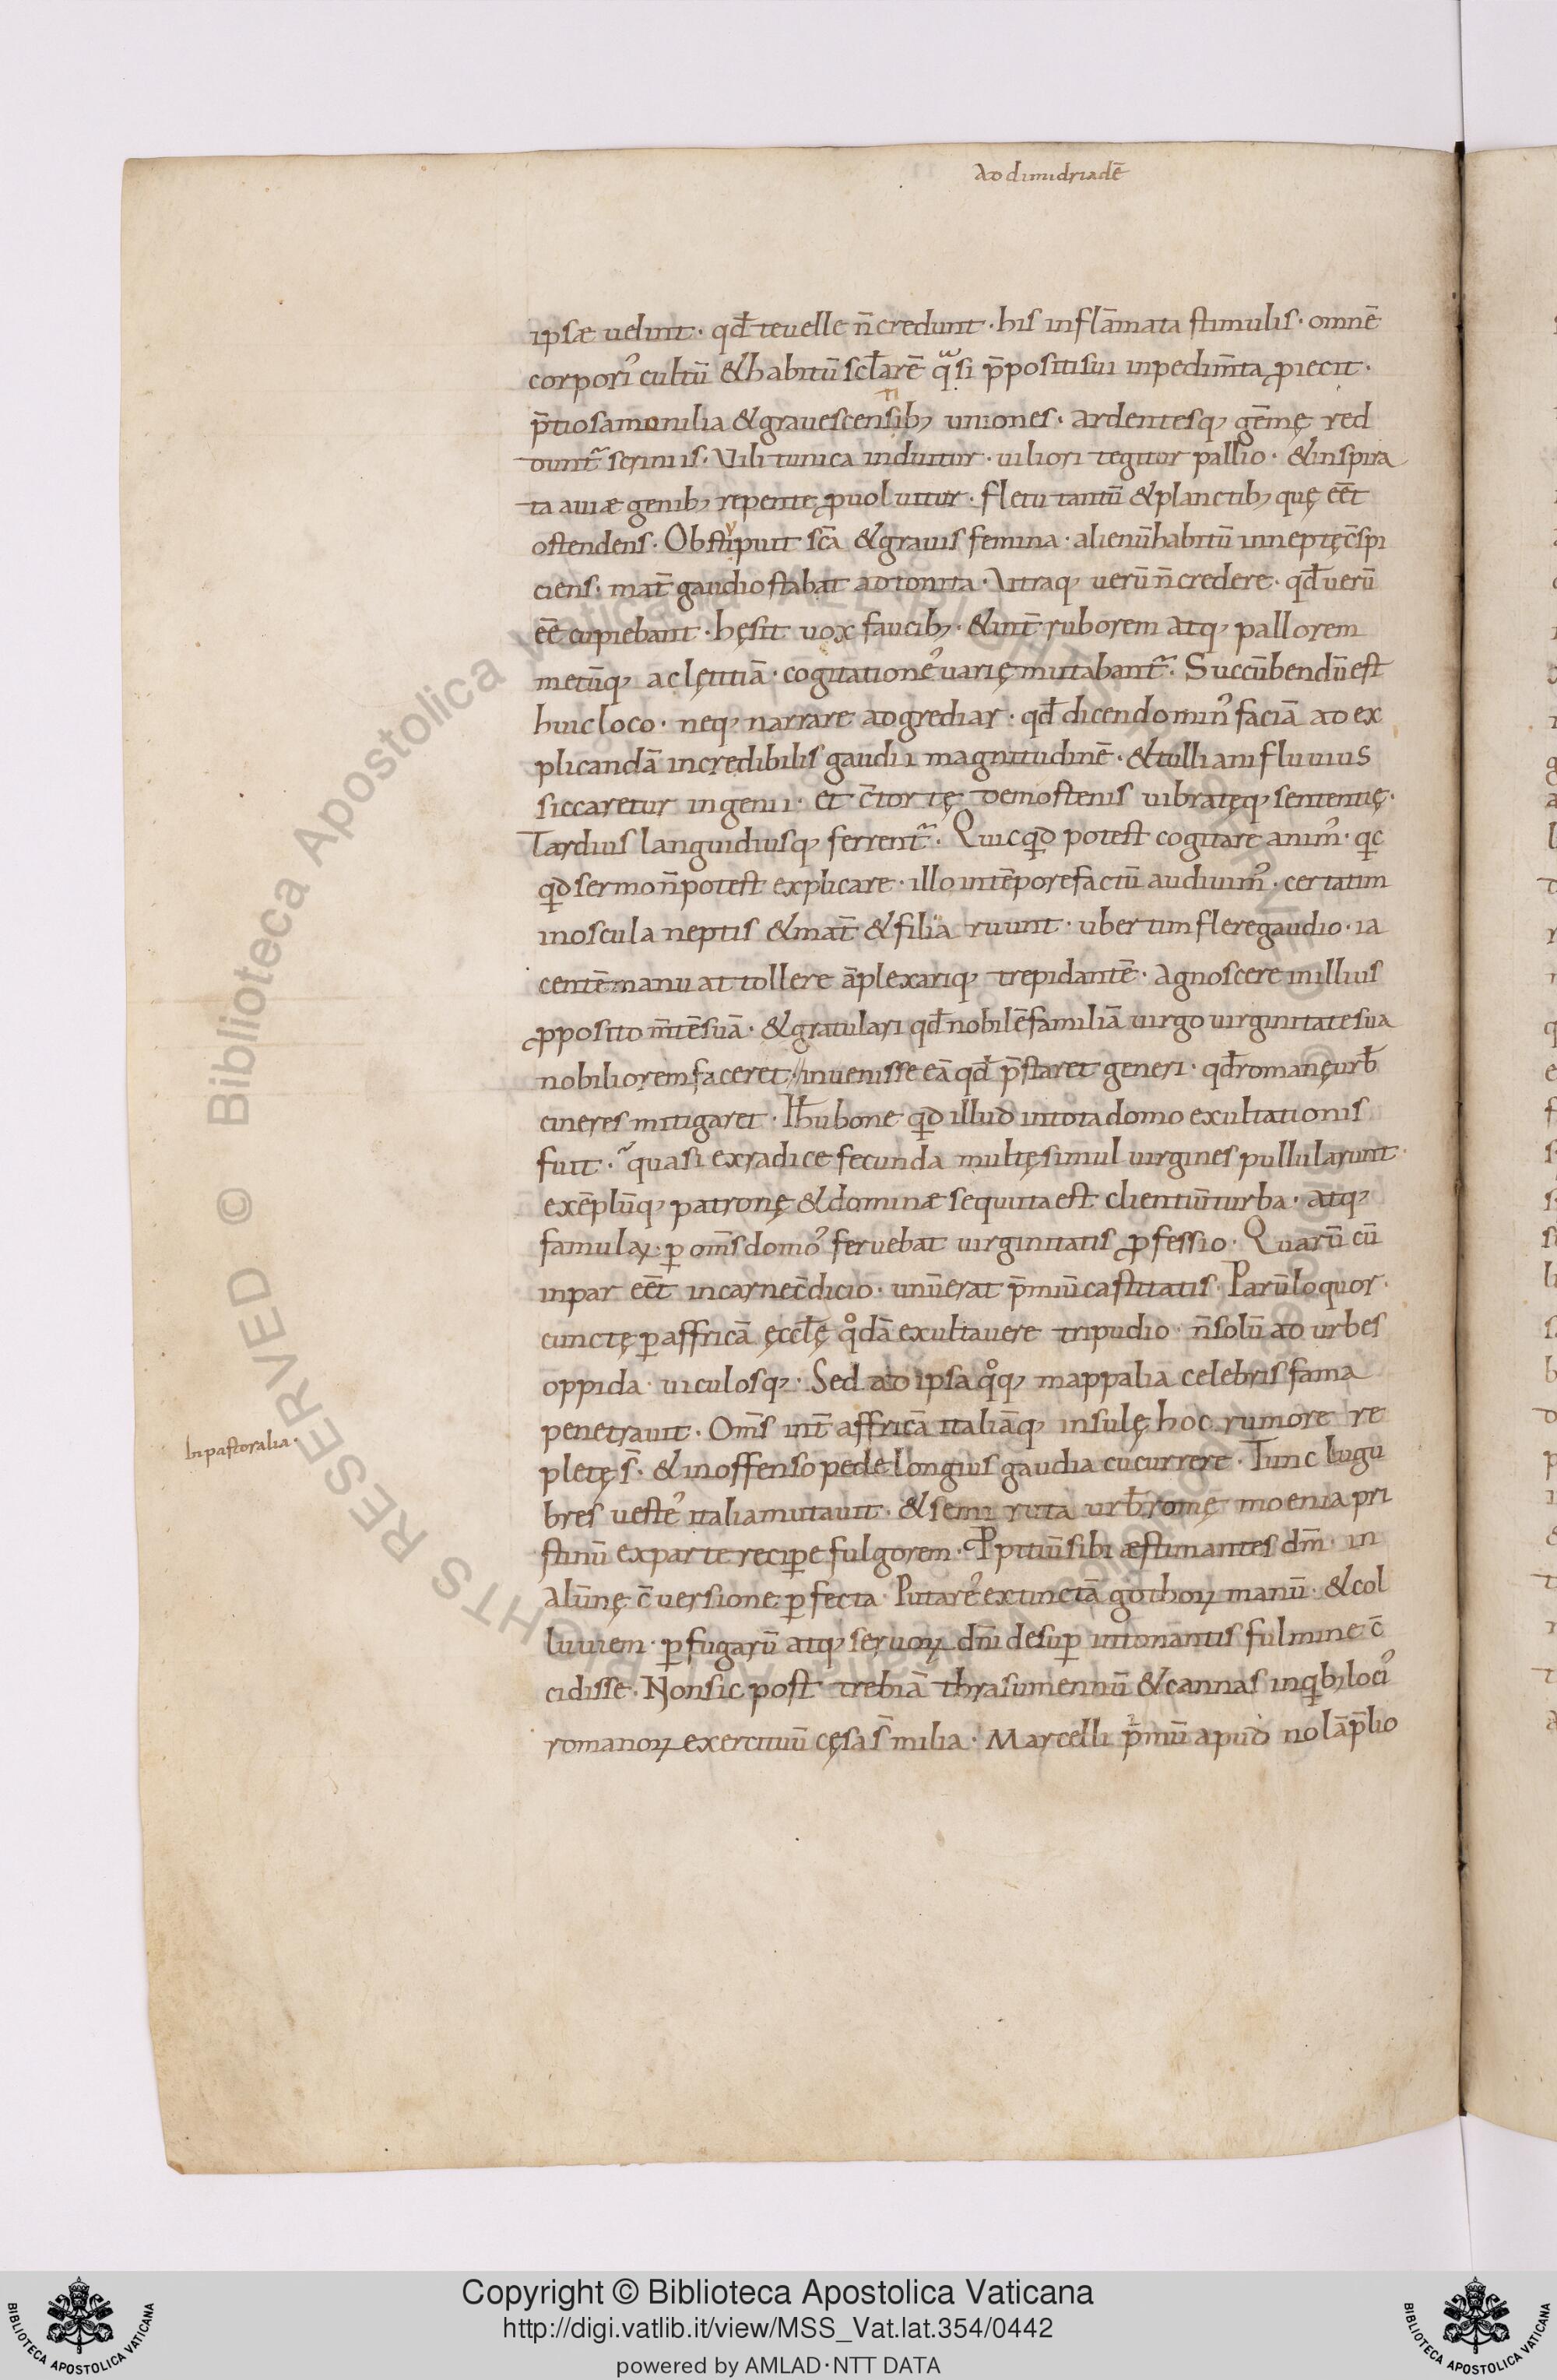 ad dimidriadē
ipsæ uelint · qđ te uelle n̄ credunt · his inflāmata stimulis · omnē
corporis cultū & habitū sclarē q̣̄si p̄positi sui inpedim̄ta ꝓiecit ·
p̄tiosa monilia & graues censib; uniones · ardentesq; gēmę red
duntᷣ scriniis · Vili tunica induitur · uiliori tegitur pallio · & inspira
ta auiæ genib; repente ꝓuoluitur · fletu tantū & planctib; quę eēt
ostendens · Obstipuit sc̄a & grauis femina · alienū habitū in neptę c̄spi
ciens · mat̄ gaudio stabat adtonita · Vtraq; uerū n̄ credere · qđ uerū
eē cupiebant · hęsit uox faucib; · & int̄ ruborem atq; pallorem
metūq; ac lętitiā · cogitationeʼ uarię mutabantᷣ · Succūbendū est
huic loco · neq; narrare adgrediar · qđ dicendo min᾽ faciā ad ex
plicandā incredibilis gaudii magnitudinē · & tulliani fluuius
siccaretur ingenii · et c̄tortę demostenis uibratęq; sententię ·
Tardius languidiusq; ferrentᷣ · Quicqđ potest cogitare anim᾽ · qc
qđ sermo n̄ potest explicare · illo in tēpore factū audiuim᾽ · certatim
in oscula neptis & mat̄ & filia ruunt · ubertim flere gaudio · ia
centē manu attollere āplexariq; trepidantē · agnoscere in illius
ꝓposito m̄tē suā · & gratulari qđ nobilē familiā uirgo uirginitate sua
nobiliorem faceret · inuenisse eā qđ p̄staret generi · qđ romanę urƀ
cineres mitigaret · Ihu bone qđ illud in tota domo exultationis
fuit · quasi ex radice fecunda multę simul uirgines pullularunt ·
exēplūq; patronę & dominæ sequuta est clientiū turba · atq;
famulaꝝ · ꝑ om̄s domo᾽ feruebat uirginitatis ꝓfessio · Quarū cū
inpar eēt in carne c̄dicio · unū erat p̄miū castitatis · Parū loquor ·
cunctę ꝑ affricā ęccłę q̊dā exultauere tripudio · n̄ solū ad urbes
oppida · uiculosq; · Sed ad ipsa q̊q; mappalia celebris fama
penetrauit · Om̄s int̄ affricā italiāq; insulę hoc rumore re
pletę s̄ · & inoffenso pede longius gaudia cucurrere · Tunc lugu
In pastoralia ·
bres uesteʼ italia mutauit · & semiruta urƀ romę moenia pri
stinū ex parte reciꝑe fulgorem · Ꝓpitiū sibi æstimantes dm̄ · in
alūnę c̄uersione ꝑfecta · Putare᾽ extinctā gothoꝝ manū · & col
luuiem · ꝑfugarū atq; seruoꝝ dn̄i desuꝑ intonantis fulmine c̄
cidisse · Non sic post trebiā thrasumennū & cannas in qƀ loci᾽
romanoꝝ exercituū cęsa s̄ milia · Marcelli p̄mū apud nolā p̄lio
Copyright © Biblioteca Apostolica Vaticana
http://digi.vatlib.it/view/MSS_Vat.lat.354/0442
powered by AMLAD·NTT DATA